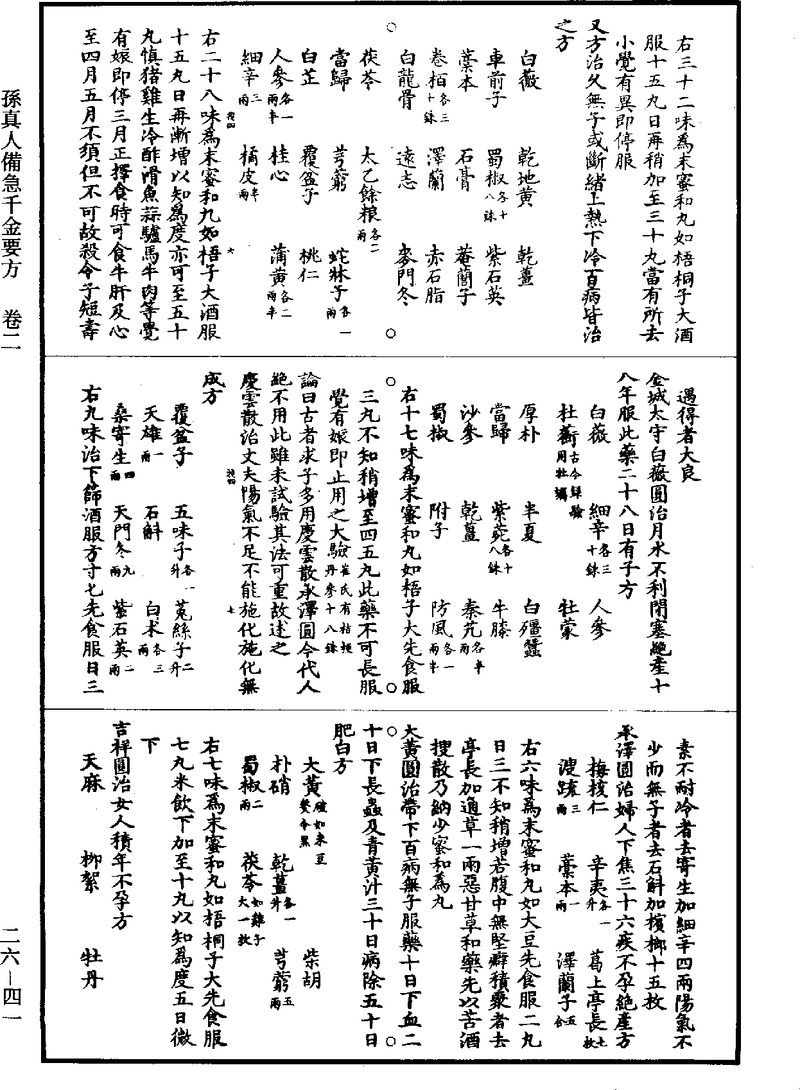 孫真人備急千金要方　卷二
右三十二味為末蜜和丸如梧桐子大酒
服十五丸日再稍加至三十丸當有所去
小覺有異即停服
又方治久無子或斷緒上熱下冷百病皆治
之方
白薇　乾地黃　乾薑
車前子　蜀椒各十八銖　紫石英
藁本　石膏　菴䕡子
卷栢各三十銖　澤蘭　赤石脂
白龍骨　遠志　麥門冬
茯苓　太乙餘糧各二兩
當歸　芎藭　蛇牀子各一兩
白芷　覆盆子　桃仁
人參各一兩半　桂心　蒲黃各二兩半
細辛三兩　橘皮半兩
右二十八味為末蜜和丸如梧子大酒服
十五丸日再漸增以知為度亦可至五十
丸慎猪雞生冷酢滑魚蒜驢馬牛肉等覺
有娠即停三月正擇食時可食牛肝及心
至四月五月不須但不可故殺令子短壽
遇得者大良
金城太守白薇圓治月水不利閉塞絕產十
八年服此藥二十八日有子方
白薇　細辛各三十銖　人參
杜蘅古今錄驗用牡蠣　牡蒙
厚朴　半夏　白殭蠶
當歸　紫菀各十八銖　牛膝
沙參　乾薑　秦艽各半兩
蜀椒　附子　防風各一兩半
右十七味為末蜜和丸如梧子大先食服
三丸不知稍增至四五丸此藥不可長服
覺有娠即止用之大驗崔氏有桔梗丹參十八銖
論曰古者求子多用慶雲散承澤圓今代人
絕不用此雖未試驗其法可重故述之
慶雲散治丈夫陽氣不足不能施化施化無
成方
覆盆子　五味子各一升　菟絲子二升
天雄一兩　石斛　白朮各三兩
桑寄生四兩　天門冬九兩　紫石英二兩
右九味治下篩酒服方寸匕先食服日三
素不耐冷者去寄生加細辛四兩陽氣不
少而無子者去石斛加檳榔十五枚
承澤圓治婦人下焦三十六疾不孕絕產方
梅核仁　辛夷各一升　葛上亭長七枚
溲疏二兩　藁本一兩　澤蘭子五合
右六味為末蜜和丸如大豆先食服二丸
日三不知稍增若腹中無堅癖積聚者去
亭長加通草一兩惡甘草和藥先以苦酒
搜散乃納少蜜和為丸
大黃圓治帶下百病無子服藥十日下血二
十日下長蟲及青黃汁三十日病除五十日
肥白方
大黃破如米豆熬令黑　柴胡
朴硝　乾薑各一升　芎藭五兩
蜀椒二兩　茯苓如雞子大一枚
右七味為末蜜和丸如梧桐子大先食服
七丸米飲下加至十丸以知為度五日微
下
吉祥圓治女人積年不孕方
天麻　柳絮　牡丹
二六－四一